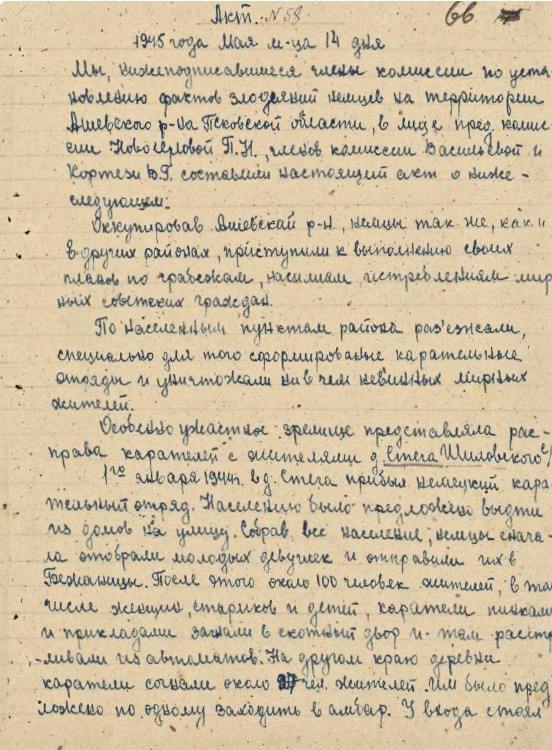 Акт. №58 66
1945 года Мая м-ца 14 дня
Мы, нижеподписавшиеся члены комиссии по уста-
новлению фактов злодеяний немцев на территории
Ашевского р-на Псковской области, в лице пред. комис-
сии Новоселовой П.Н., членов комиссии Васильевой и
В.Г. составили настоящий акт о ниже-
следующем.
Оккупировав Ашевский р-н, немцы так же, как и
в других районах, приступили к выполнению своих
планов по грабежам, насилиям, истреблениям мир
ных советских граждан.
По населенным пунктам района раз'езжали,
специально для того сформированые карательные
отряды и уничтожали ни в чем невинных мирных
жителей.
Особенно ужастное зрелище представляла рас-
права карателей с жителями д. Стега Шиловского с/
1го января 1944г. в д. Стега прибыл немецкий кара-
тельный отряд. Населению было предложено выдти
из домов на улицу. Собрав все население, немцы снача-
ла отобрали молодых девушек и отправили их в
Бежаницы. После этого около 100 человек жителей, в том
числе женщин, стариков и детей, каратели пинками
и прикладами загнали в скотный двор и там расстре
ливали из автоматов. На другом краю деревни
каратели согнали около чел. жителей. Им было пред
ложено по одному заходить в амбар. У входа стоял